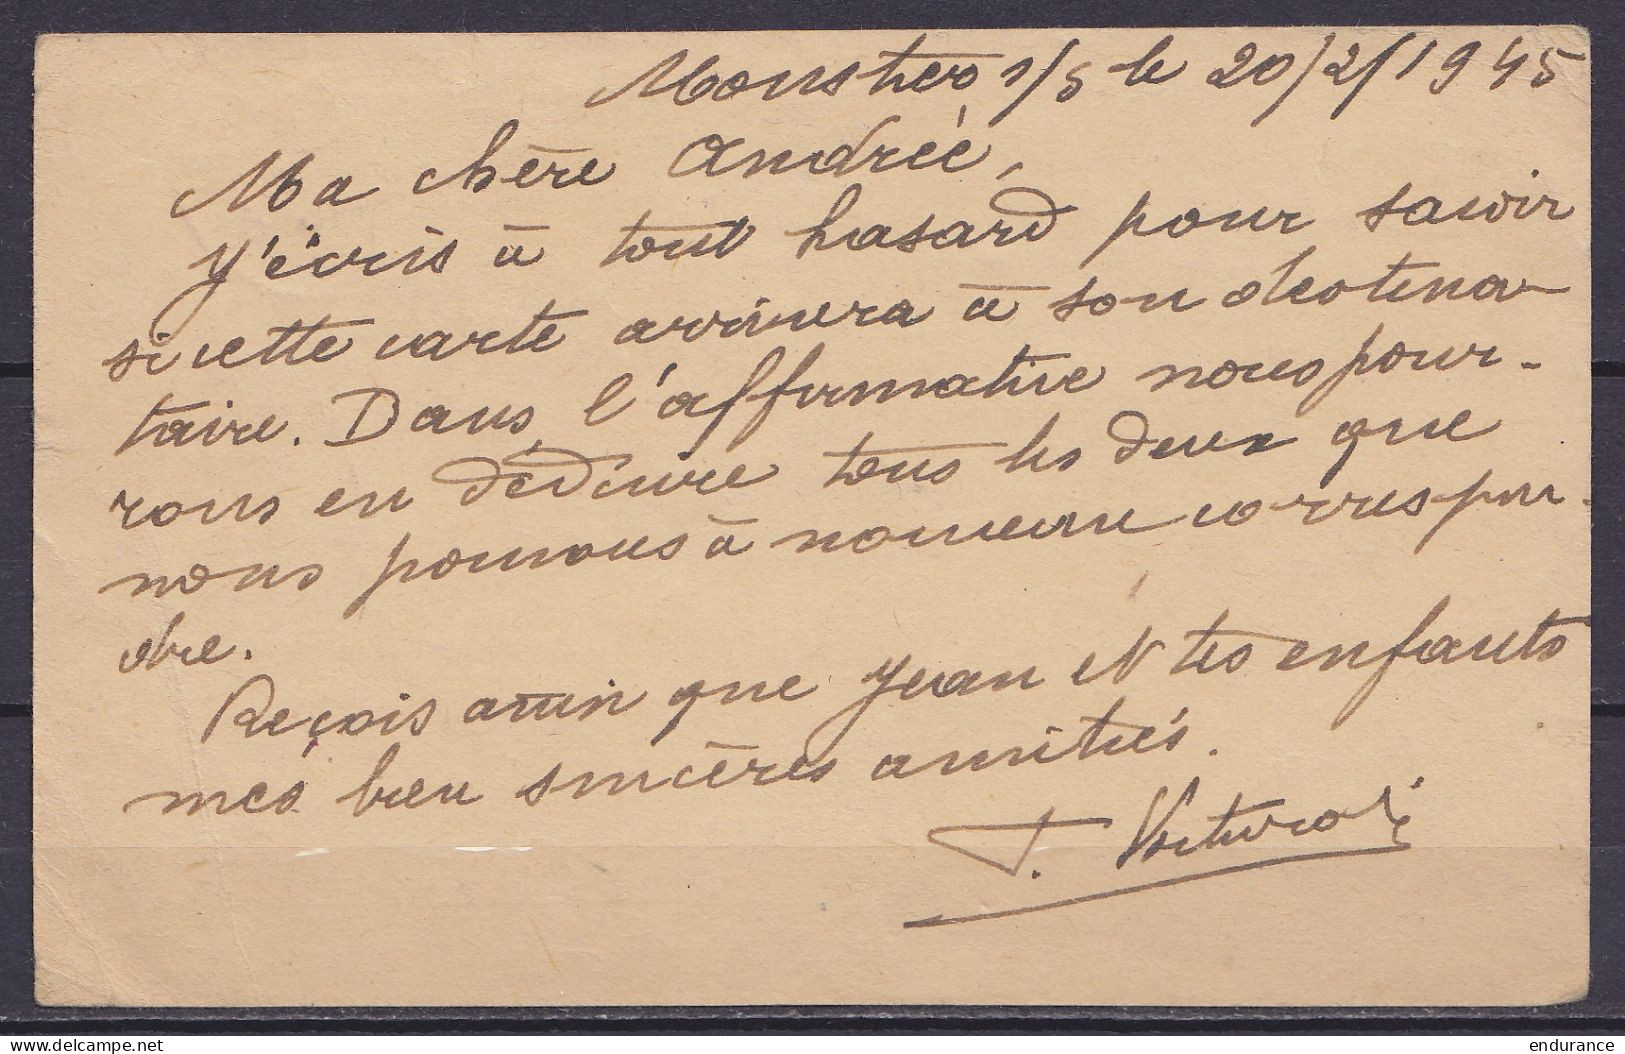 Moustier s/S le 20/2/1945
Ma chère Andrée,
J'écris à tout hasard pour savoir
si cette carte arrivera à son destina-
taire. Dans l'affirmative nous pour-
rons en déduire tous les deux que
nous pouvons à nouveau correspon-
dre.
Reçois ainsi que Jean et tes enfants
mes bien sincères amitiés.
J.
delcampe.net
endurance